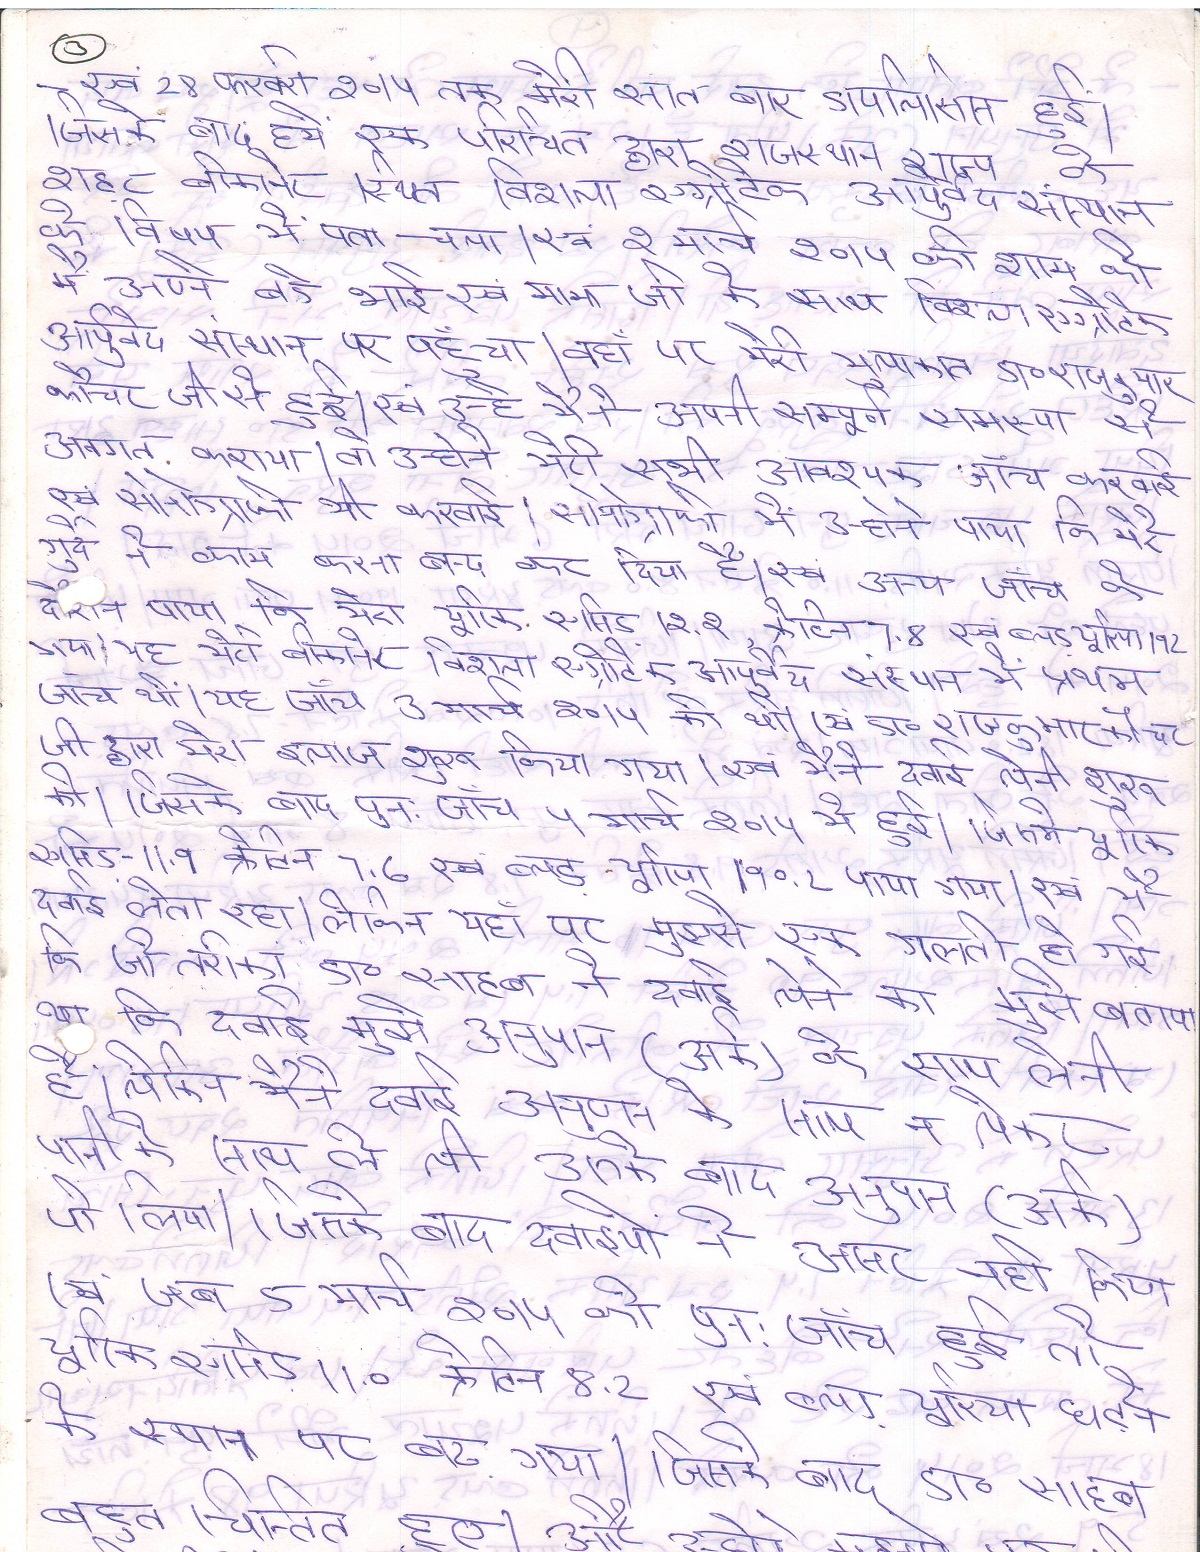 3
→ एवं 28 फरवरी २०१५ तक मेरी सात बार डायलिसिस हुई।
जिसके बाद हमें एक परिचित द्वारा राजस्थान राज्य के
शहर बीकानेर स्थित विशाला एग्रोटेक आयुर्वेद संस्थान
के विषय में पता चला। एवं २ मार्च २०१५ की शाम को
मैं अपने बडे भाई एवं मामा जी के साथ विशाला एग्रोटेक
आयुर्वेद संस्थान पर पहुँचा। वहाँ पर मेरी मुलाकात डा० राजकुमार
कौचर जी से हुई। एवं उन्हे मैंने अपनी सम्पूर्ण समस्या से
अवगत कराया। तो उन्होने मेरी सभी आवश्यक जाँच करवाई
एवं सोनोग्राफी भी करवाई। सोनोग्राफी में उन्होने पाया कि मेरे
गुर्दे ने काम करना बन्द कर दिया है। एवं अन्य जाँच के
दौरान पाया कि मेरा यूरिक एसिड 12.2, क्रेटिन 7.8 एवं ब्लड यूरिया 192
गया। यह मेरी बीकानेर विशाला एग्रोटेक आयुर्वेद संस्थान में प्रथम
जाँच थी। यह जाँच 3 मार्च २०१५ को थी। एवं डा० राजकुमार कौचर
जी द्वारा मेरा इलाज शुरू किया गया। एवं मैंने दवाई लेनी शुरू
की। जिसके बाद पुनः जाँच ५ मार्च २०१५ में हुई। जिसमे यूरिक
एसिड-11.9 क्रेटिन 7.6 एवं ब्लड यूरिया 190.2 पाया गया। एवं मैं
दवाई लेता रहा। लेकिन यहाँ पर मुझसे एक गलती हो गई
कि जो तरीका डा० साहब ने दवाई लेने का मुझे बताया
था कि दवाई मुझे अनुपान (अर्क) के साथ लेनी
है। लेकिन मैंने दवाई अनुपान के साथ न लेकर
पानी के साथ ले ली उसके बाद अनुपान (अर्क)
पी लिया। जिसके बाद दवाईयों ने असर नही किया
एवं जब 5 मार्च २०१५ को पुनः जाँच हुई तो
यूरिक एसिड 11.0 क्रेटिन 8.2 एवं ब्लड यूरिया घटने
के स्थान पर बढ गया। जिसके बाद डा० साहब
बहुत चिन्तित हुए। और उन्होने